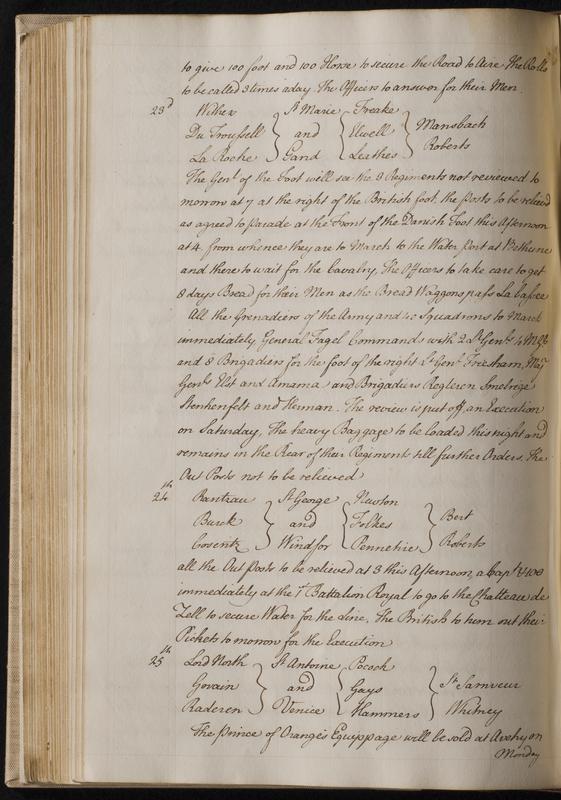 to give 100 foot and 100 Horse to secure the Road to Aire The Rolls
to be called 3 times a day. The Officers to answer for their Men.
23d Wither } St Marie { Freake } Mansbach
Du Troussell } and { Elwell } Roberts
La Roche } Gand { Leathes }
The Genl of the Foot will see the 8 Regiments not reviewed to
morrow at 7 at the right of the British foot, the posts to be relieved
as agreed to parade at the Front of the Danish Foot this Afternoon
at 4 from whence they are to March to the Water port at Bethune
and there to wait for the Cavalry, The Officers to take care to get
8 days Bread for their Men as the Bread Waggons pass La bassee
All the Grenadiers of the Army and 40 Squadrons to March
immediately, General Fagel Commands with 2 Lt Genls 4 MGs
and 8 Brigadiers for the foot of the right Lt Genl Friesham, Maj
Genls Elst and Amama and Brigadiers Kegleren Smebrige
Stenhenfelt and Herman. The review is put off, an Execution
on Saturday, The heavy Baggage to be loaded this night and
remains in the Rear of their Regiments till further Orders, The
Out Posts not to be relieved
24th Rantzau } St George { Newton } Bert
Burck } and { Folkes } Roberts
Cosentz } Windsor { Pennetire }
all the Out posts to be relieved at 3 this Afternoon, a Capt & 100
immediately at the 1t Battalion Royal to go to the Chatteau de
Zell to secure Water for the Line, The British to turn out their
Pickets to morrow for the Execution
25th Lord North } St Antoine { Pocock } St Samveur
Govain } and { Gays } Whitney
Raderen } Venice { Hammers }
The Prince of Orange's Equippage will be sold at Avehy on
Monday